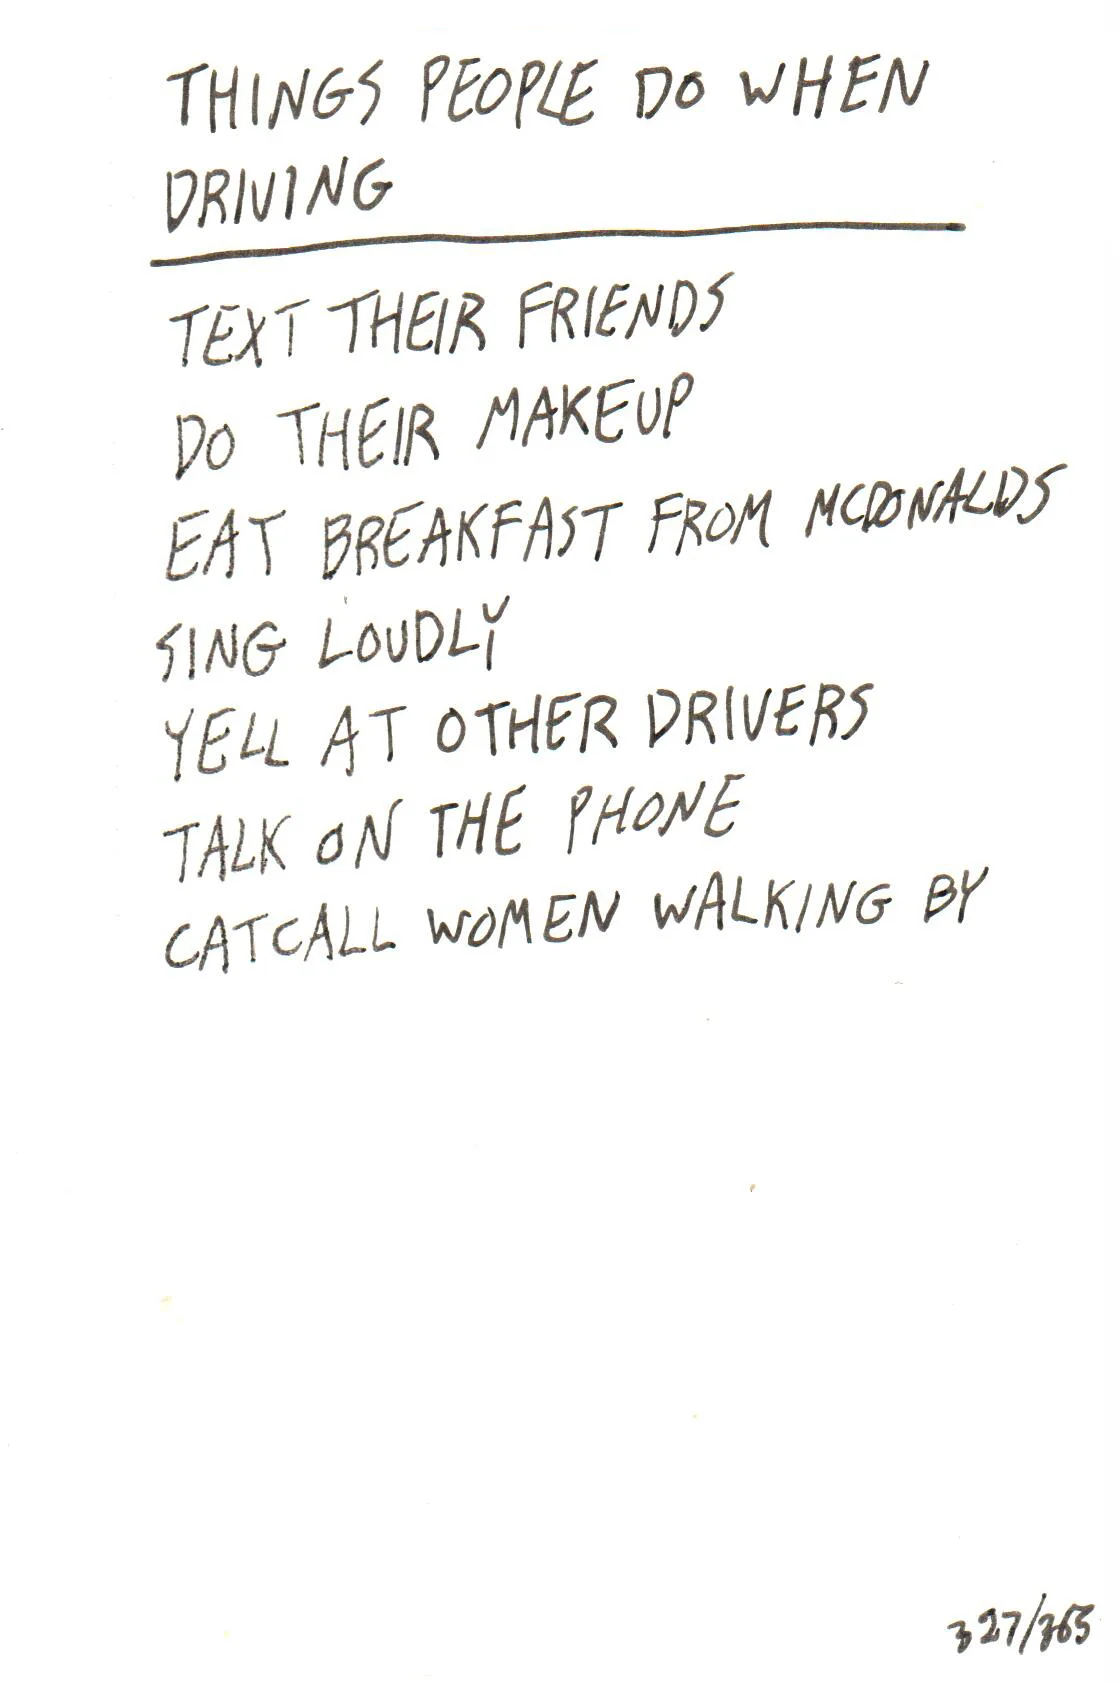 THINGS PEOPLE DO WHEN
DRIVING
TEXT THEIR FRIENDS
DO THEIR MAKEUP
EAT BREAKFAST FROM MCDONALDS
SING LOUDLY
YELL AT OTHER DRIVERS
TALK ON THE PHONE
CATCALL WOMEN WALKING BY
327/365